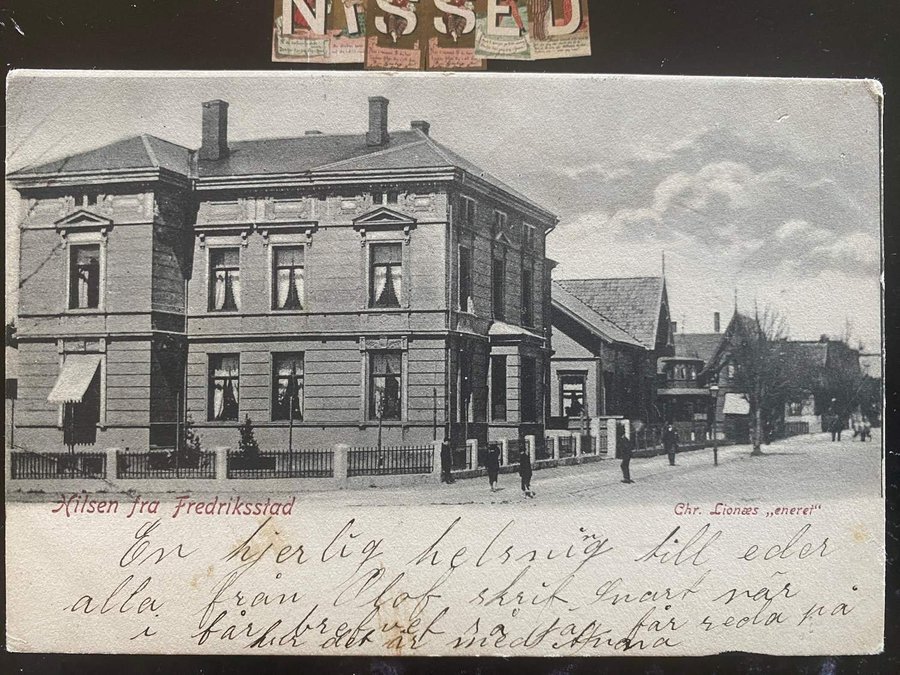 NISSED
Hilsen fra Fredriksstad
Chr. Lionæs „enerei“
En hjerlig helsning till eder
alla från Olof skrif snart när
i får brefvet så jag får reda på
hur det är med Anna